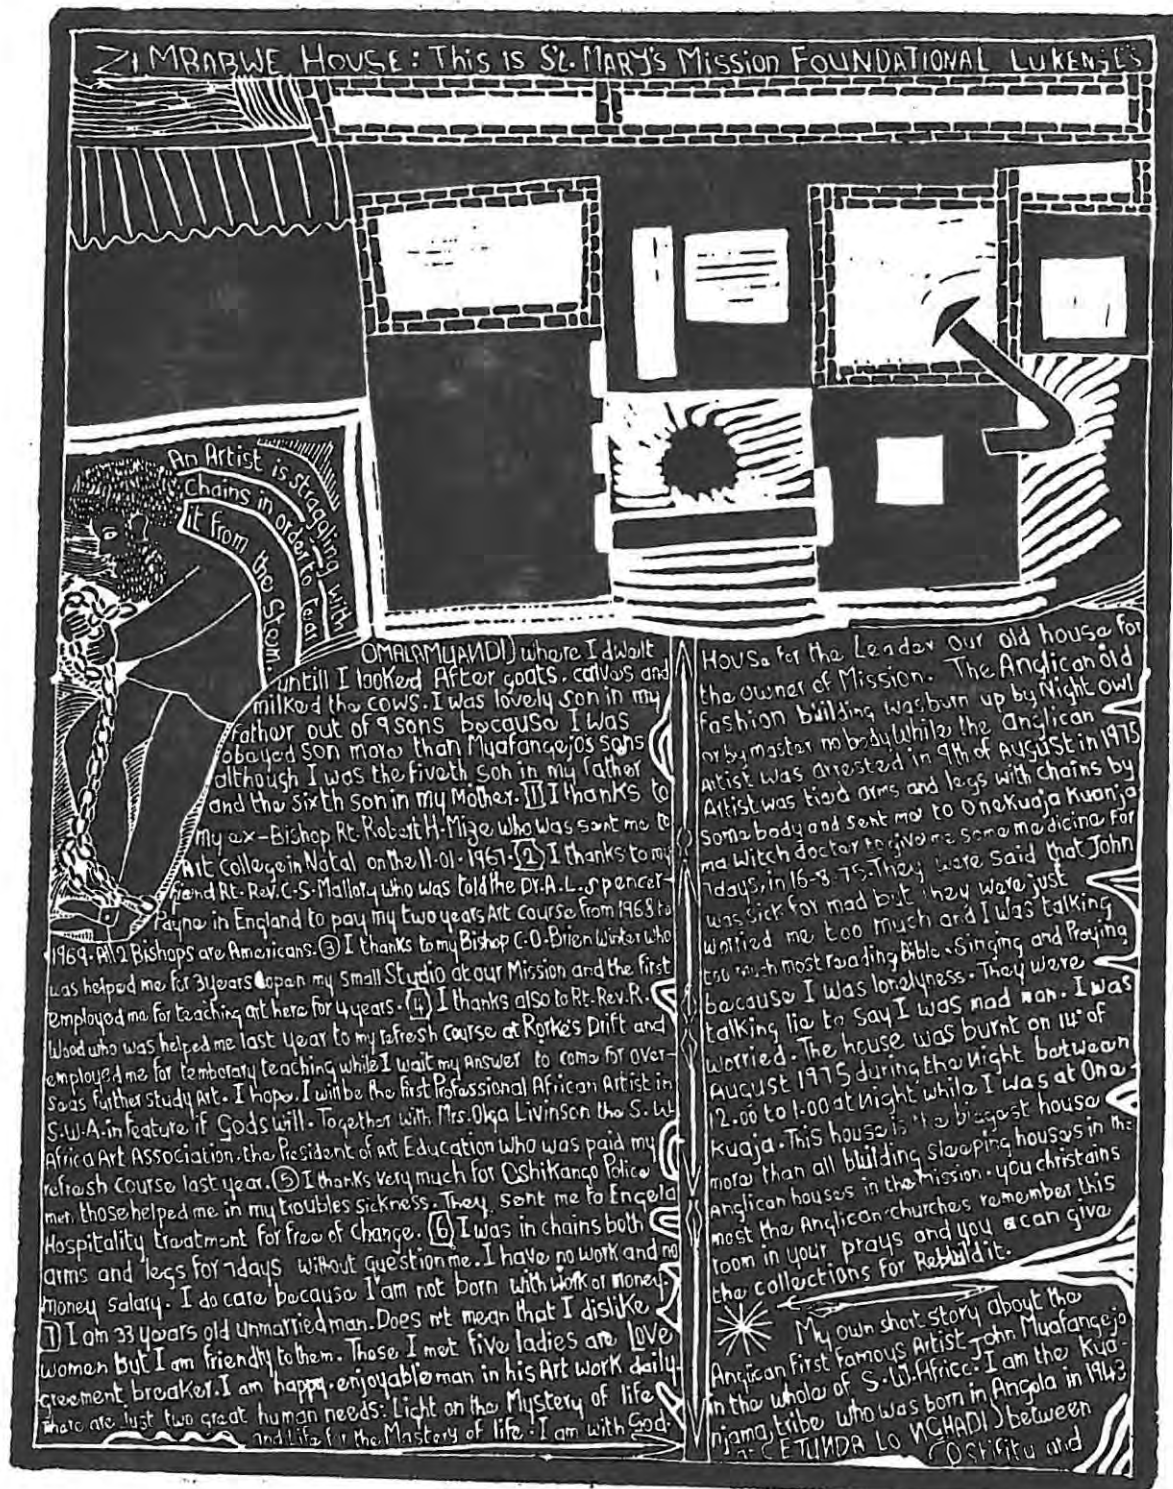 ZIMBABWE HOUSE: This is St. MARY's Mission FOUNDATIONAL LUKENGE'S
An Artist is straggling with
chains in order to tear
it from the Stem.
OMALAMUANDI) where I dwelt
untill I looked After goats, calves and
milked the cows. I was lovely son in my
Father out of 9 sons because I was
obeyed son more than Muafangejos sons
although I was the fiveth son in my father
and the sixth son in my Mother. 1 I thanks to
My ex-Bishop Rt. Robert H. Mize who was sent me to
Art College in Natal on the 11-01-1967. 2 I thanks to my
friend Rt-Rev. C-S-Mallory who was told the Dr. A. L. spencer-
Payne in England to pay my two years Art course from 1968 to
1969. All 2 Bishops are Americans. 3 I thanks to my Bishop C-O-Brien Winter who
was helped me for 3 years open my small Studio at our Mission and the first
employed me for teaching art here for 4 years. 4 I thanks also to Rt-Rev. R.
Wood who was helped me last year to my refresh course at Rorke's Drift and
employed me for temborary teaching while I wait my Answer to come for over-
seas further study Art. I hope. I will be the first Professional African Artist in
S.W.A. in feature if Gods will. Together with Mrs. Olga Livinson the S. W.
Africa Art Association. the President of Art Education who was paid my
refresh course last year. 5 I thanks very much for Oshikango Police
men. those helped me in my troubles sickness. They sent me to Engela
Hospitality treatment for free of Change. 6 I was in chains both
arms and legs for 7days without question me. I have no work and no
money salary. I do care because I'am not born with work or money.
7 I am 33 years old unmarried man. Does n't mean that I dislike
women but I am friendly to them. Those I met five ladies are Love
greement breaker. I am happy. enjoyable man in his Art work daily.
There are Just two great human needs: Light on the Mystery of life
and Life for the Mastery of life. I am with God.
House for the Leader our old house for
the owner of Mission. The Anglican old
Fashion building was burn up by Night owl
or by master no body While the anglican
Artist was arrested in 9th of August in 1975
Artist was tied arms and legs with chains by
Somebody and sent me to Onekuaja Kuanja
ma Witch doctor to give me some medicine for
7days, in 16-8-75. They were said that John
was sick for mad but they were just
worried me too much and I was talking
too much most reading Bible. Singing and Praying
because I was lonelyness. They were
talking lie to say I was mad man. I was
worried. The house was burnt on 14th of
August 1975 during the night between
12.00 to 1.00 at night while I was at One-
kuaja. This house is the biggest house
more than all blulding sleeping houses in the
Anglican houses in the Mission. you christains
most the Anglican churches remember this
room in your prays and you can give
the collections for Rebuild it.
My own short story about the
Anglican First famous Artist John Muafangejo
in the whole of S.W. Africa. I am the Kua-
njama tribe who was born in Angola in 1943
at (ETUNDA LO NGHADI) between
(Ostifitu and